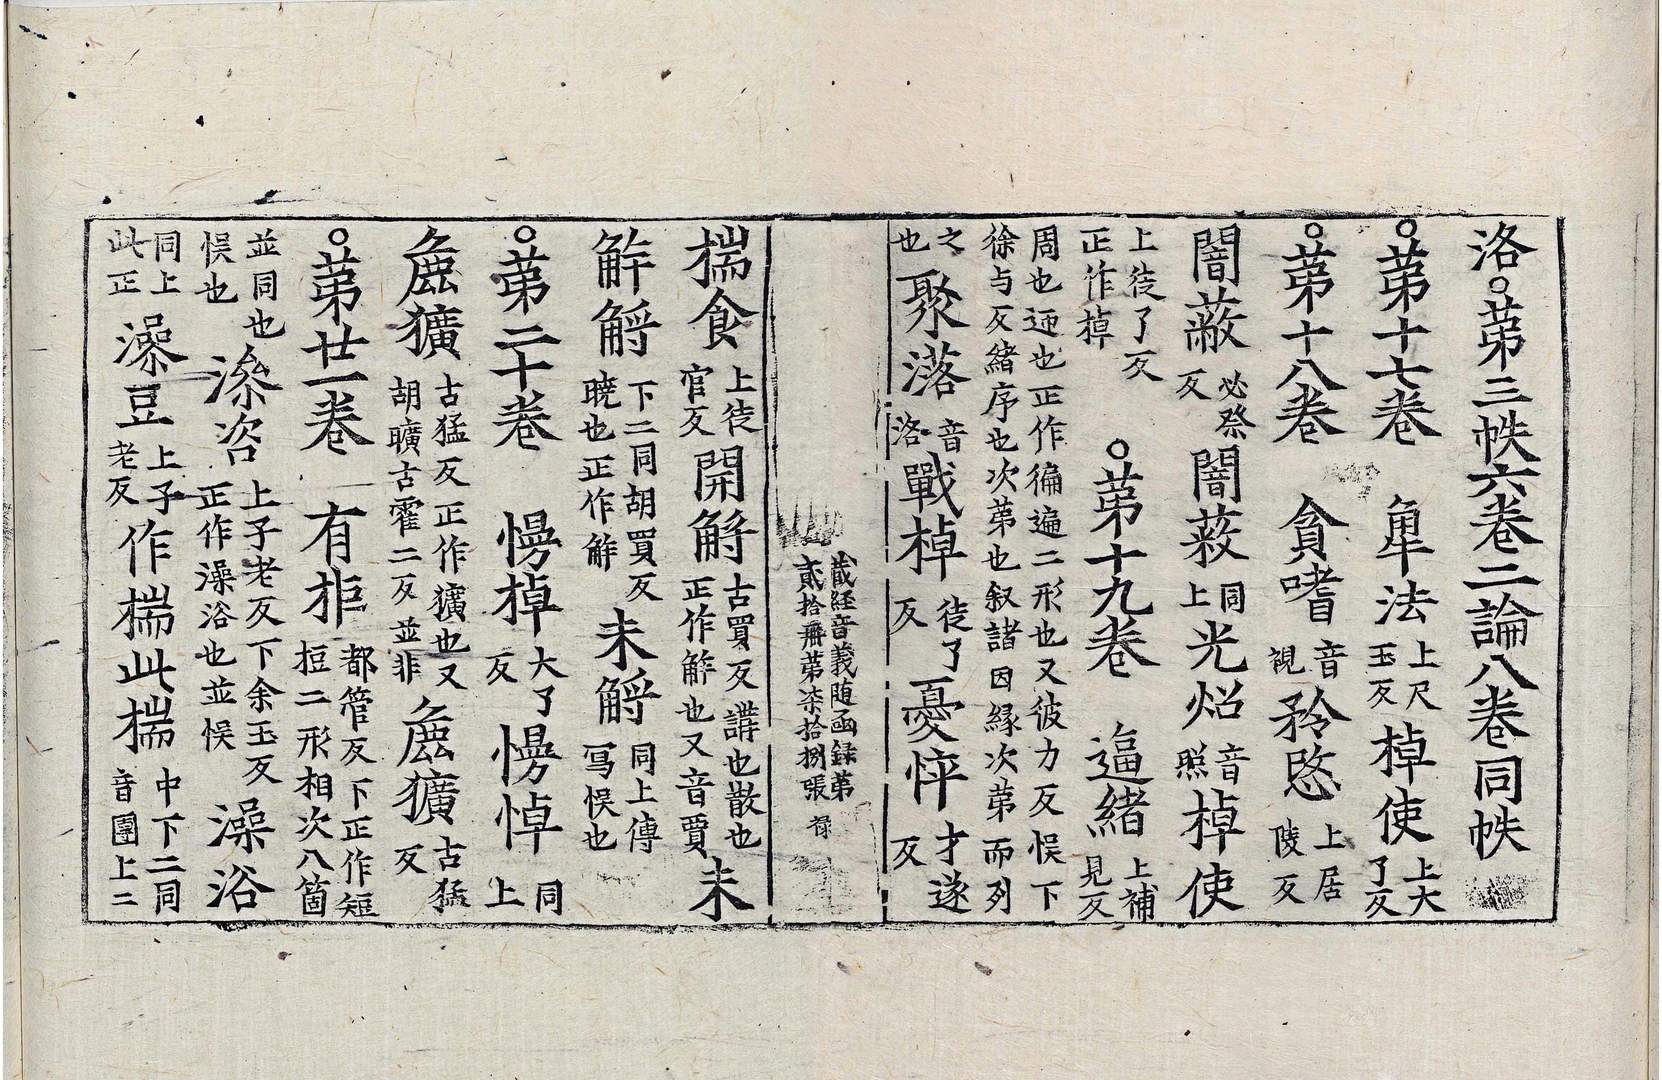 洛。苐三帙六卷二論八卷同帙
。苐十七卷　𤱶法上尺玉反棹使上大了反
。苐十八卷　貪嗜音視矜愍上居陵反
闇蔽必祭反闇蔽同上光炤音照棹使
上徒了反正作掉　。苐十九卷　逼緒上補見反
周也迊也正作徧遍二形也又彼力反悮下徐与反緒序也次苐也叙諸因緣次苐而列
之也聚落音洛戰棹徒了反憂悴才遂反
藏経音義随函録第貳拾冊第柒拾捌張　祿
揣食上徒官反開解古買反講也散也正作解也又音賈未
解解下二同胡買反曉也正作解未解同上傳寫悮也
。苐二十卷　慢棹大了反慢悼同上
麁獷古猛反正作獷也又胡曠古霍二反並非麁獷古猛反
。苐廿一卷　有柜都管反下正作短𢭃二形相次八箇
並同也悮也㵸浴上子老反下余玉反正作澡浴也並悮澡浴
同上此正澡豆上子老反作揣此揣中下二同音團上二